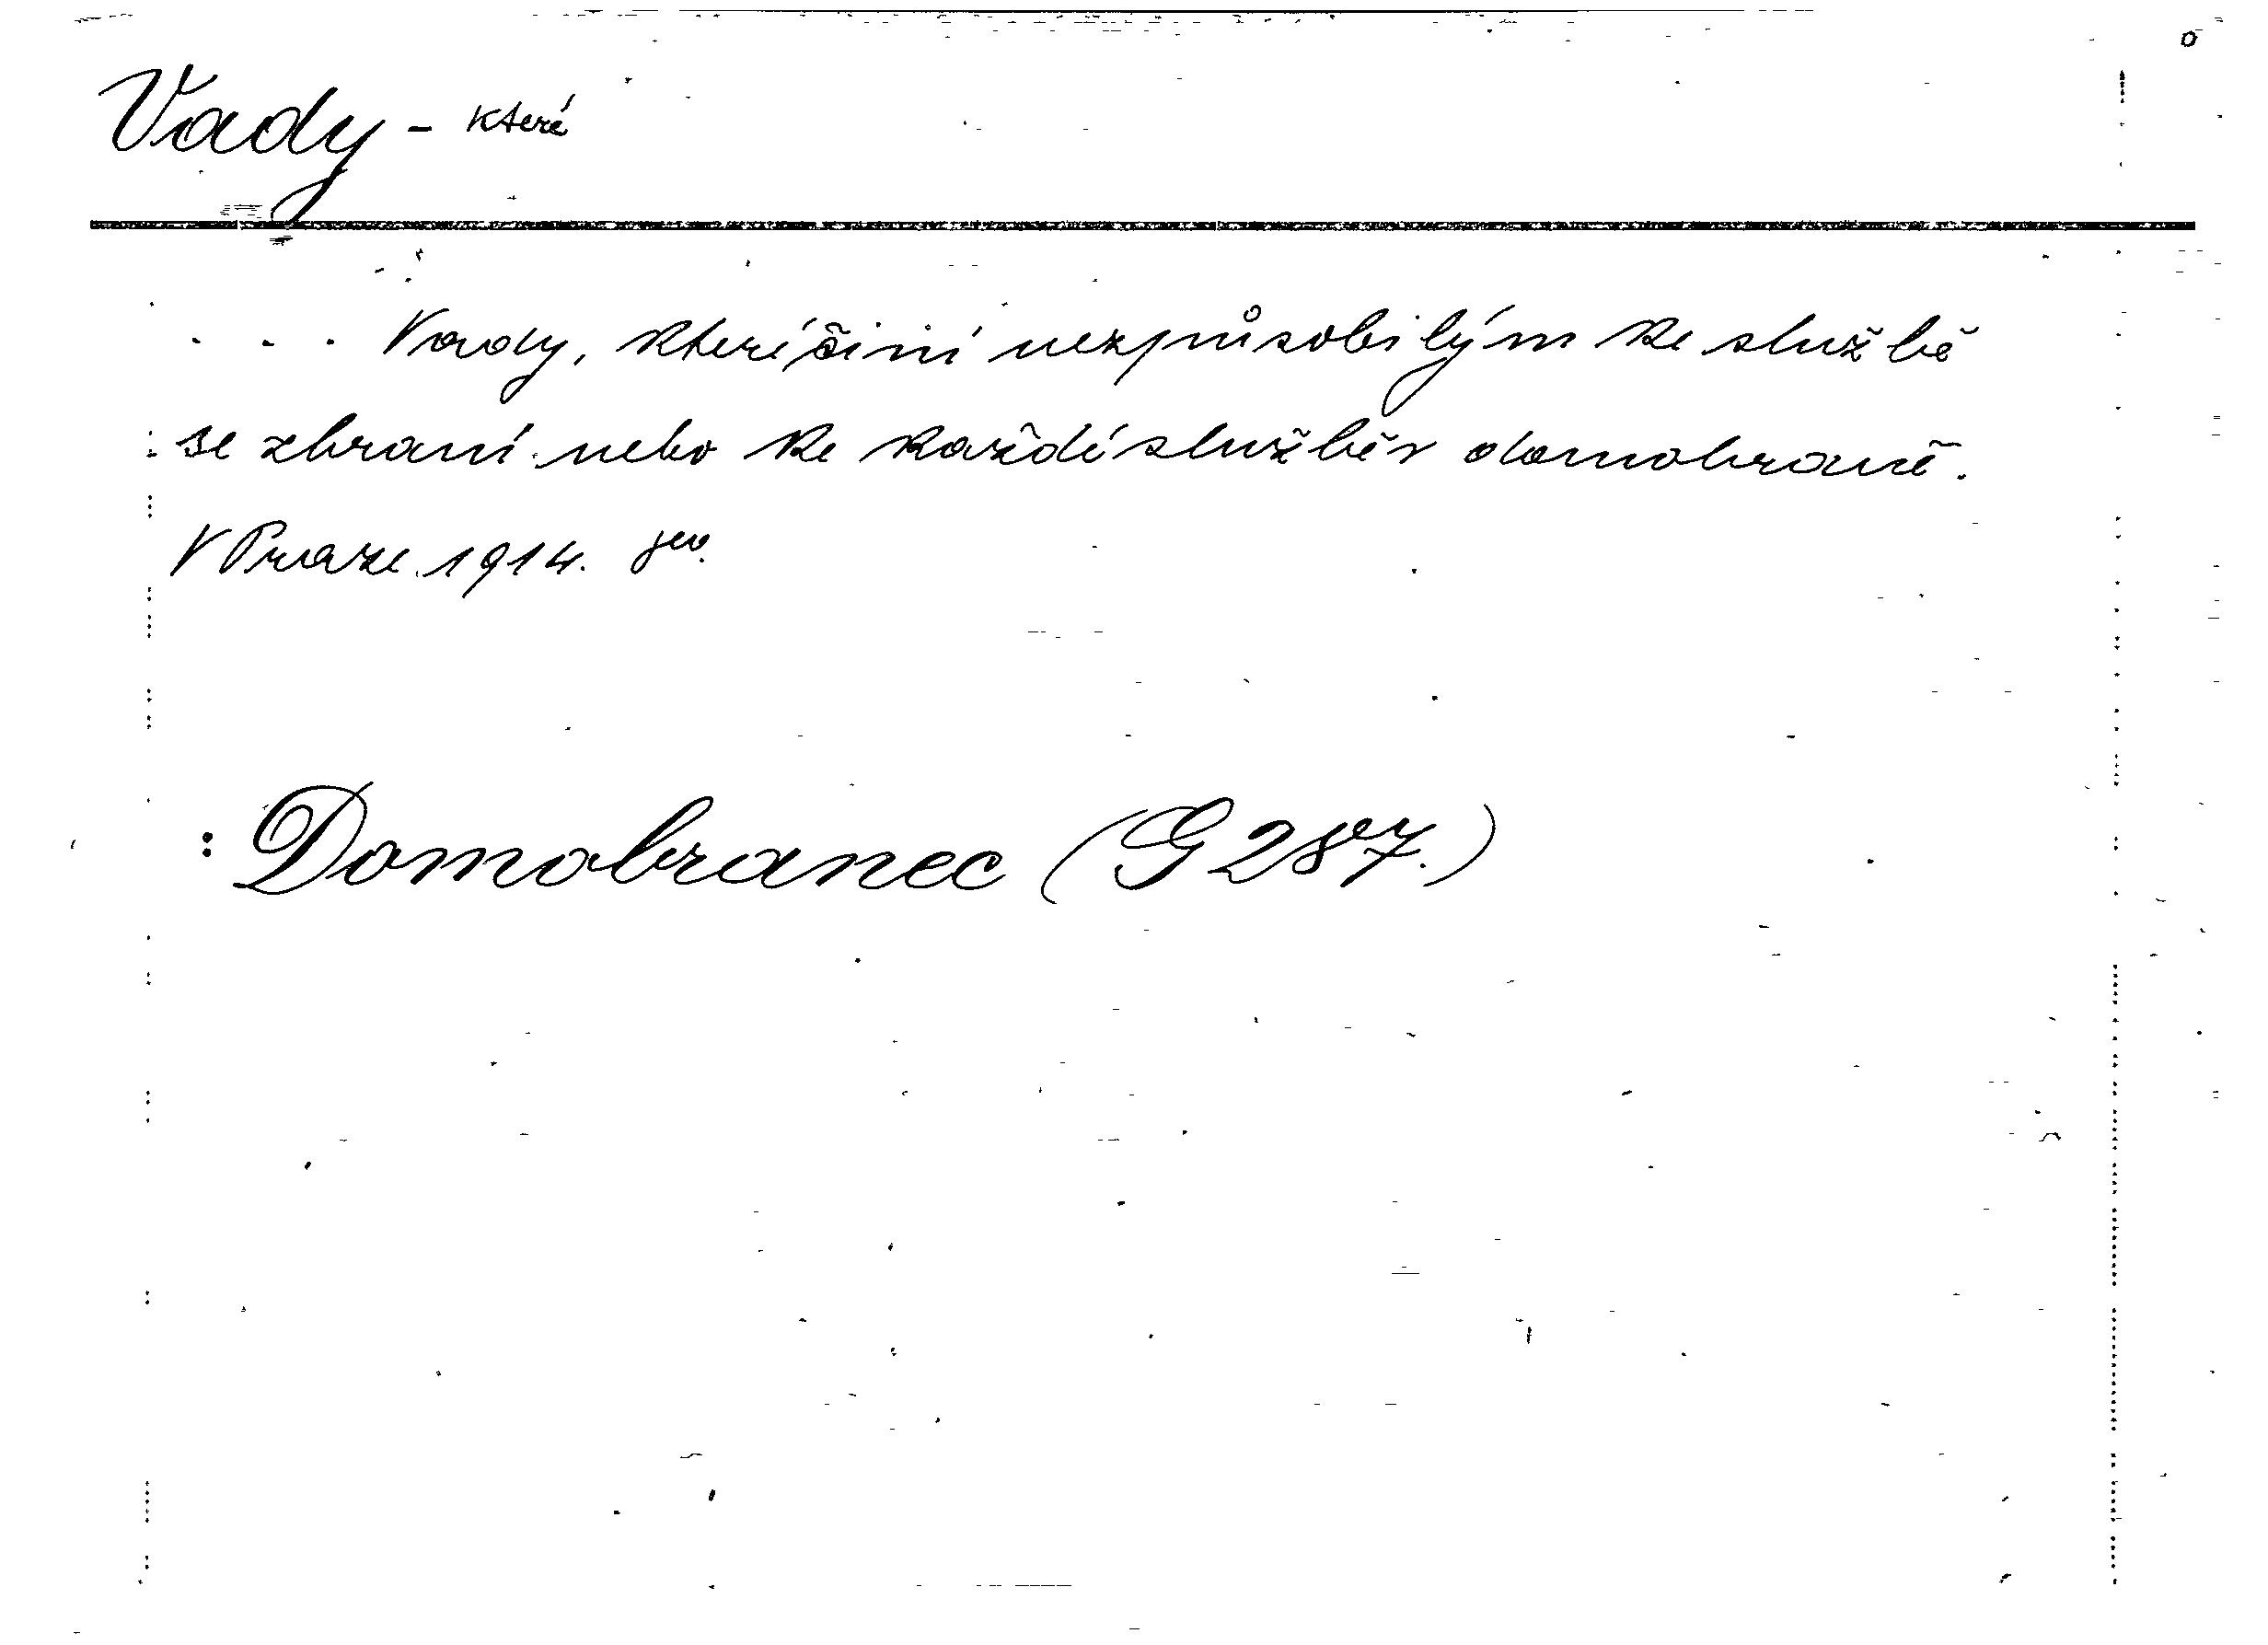 Vady - které
. . . Vady, které činí nezpůsobilým ke službě
se zbraní nebo ke každé službě v domobraně.
V Praze 1914.
: Domobranec (G 287.)